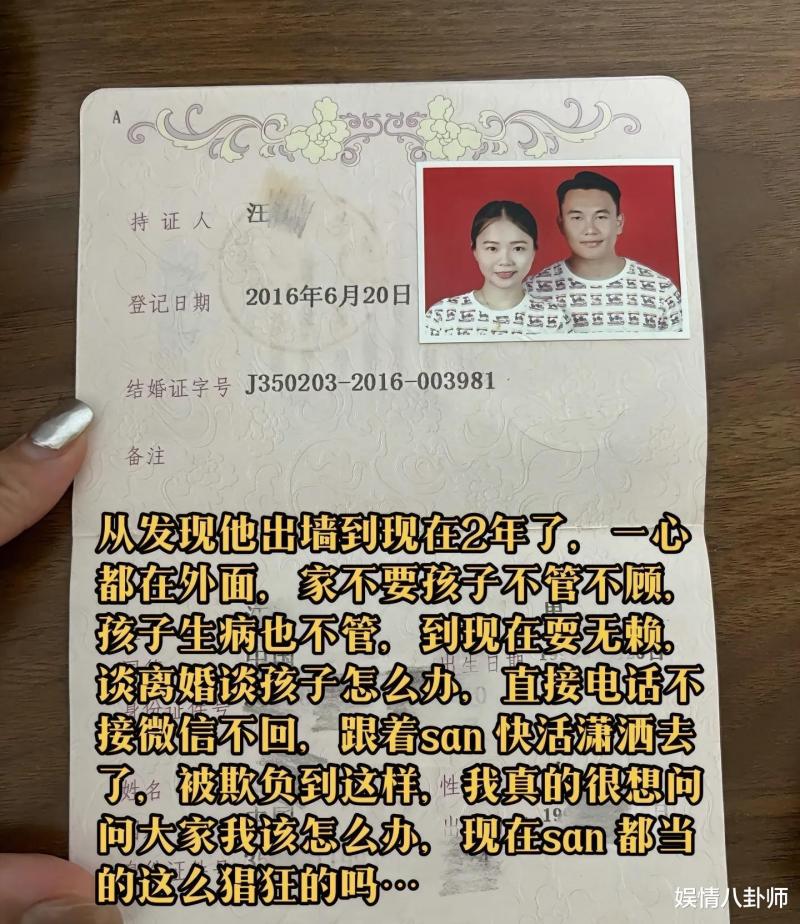 A
持证人 汪
登记日期 2016年6月20日
结婚证字号 J350203-2016-003981
备注
从发现他出墙到现在2年了，一心
都在外面，家不要孩子不管不顾，
孩子生病也不管，到现在耍无赖，
谈离婚谈孩子怎么办，直接电话不
接微信不回，跟着san 快活潇洒去
了，被欺负到这样，我真的很想问
问大家我该怎么办，现在san 都当
的这么猖狂的吗…
出生日期
姓名
娱情八卦师